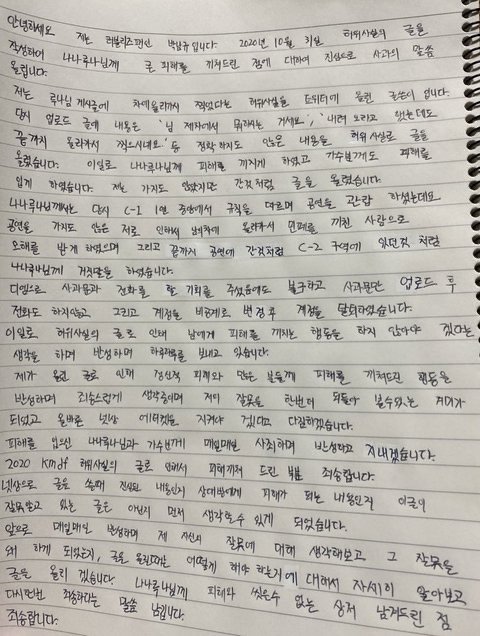 안녕하세요 저는 러블리즈팬인 입니다. 2020년 10월 31일 허위사실의 글을
작성하여 나나루나님께 큰 피해를 끼쳐드린 점에 대하여 진심으로 사과의 말씀
올립니다.
저는 루나님 게시글에 차에 올라가서 찍었다는 허위사실을 트위터에 올린 글쓴이 입니다.
당시 업로드 글에 내용은 '님 제차에서 뭐하시는 거세요', '내려 오라고 했는데도
끝까지 올라가서 찍으시네요' 등 정확하지도 않은 내용을 허위사실로 글을
올렸습니다. 이일로 나나루나님께 피해를 끼치게 하였고 가수분께도 피해를
입게 하였습니다. 저는 가지도 않았지만 간것처럼 글을 올렸습니다.
나나루나님께서는 당시 C-1 1열 중앙에서 규칙을 따르며 공연을 관람 하셨는데요
공연을 가지도 않은 저로 인하여 올라가서 민폐를 끼친 사람으로
오해를 받게 하였으며 그리고 끝까지 공연에 간것처럼 C-2 구역에 있던것 처럼
나나루나님께 거짓말을 하였습니다.
디엠으로 사과문과 전화를 할 기회를 주셨음에도 불구하고 사과문만 업로드 후
전화도 하지않고 그리고 계정을 비공계로 변경후 계정을 탈퇴하였습니다.
이일로 허위사실의 글로 인해 남에게 피해를 끼치는 행동을 하지 않아야 겠다는
생각을 하며 반성하며 하루하루를 보내고 있습니다.
제가 올린 글로 인해 정신적 피해와 많은 분들께 피해를 끼쳐드린 행동을
반성하며 죄송스럽게 생각중이며 저의 잘못을 한번더 되돌아 볼수있는 계기가
되었고 올바른 넷상 에티켓을 지켜야 겠다고 다짐하겠습니다.
피해를 입으신 나나루나님과 가수분께 매일매일 사죄하며 반성하고 지내겠습니다.
2020 kmdf 허위사실의 글로 인해서 피해끼쳐 드린 부분 죄송합니다.
넷상으로 글을 쓸때 진실된 내용인지 상대방에게 피해가 되는 내용인지 이글이
잘못알고 있는 글은 아닌지 먼저 생각할수 있게 되었습니다.
앞으로 매일매일 반성하며 제 자신의 잘못에 대해 생각해보고 그 잘못을
왜 하게 되었는지, 글을 올릴때는 어떻게 해야 하는지에 대해서 자세히 알아보고
글을 올리 겠습니다. 나나루나님께 피해와 씻을수 없는 상처 남겨드린 점
다시한번 죄송하다는 말씀 남깁니다.
죄송합니다.